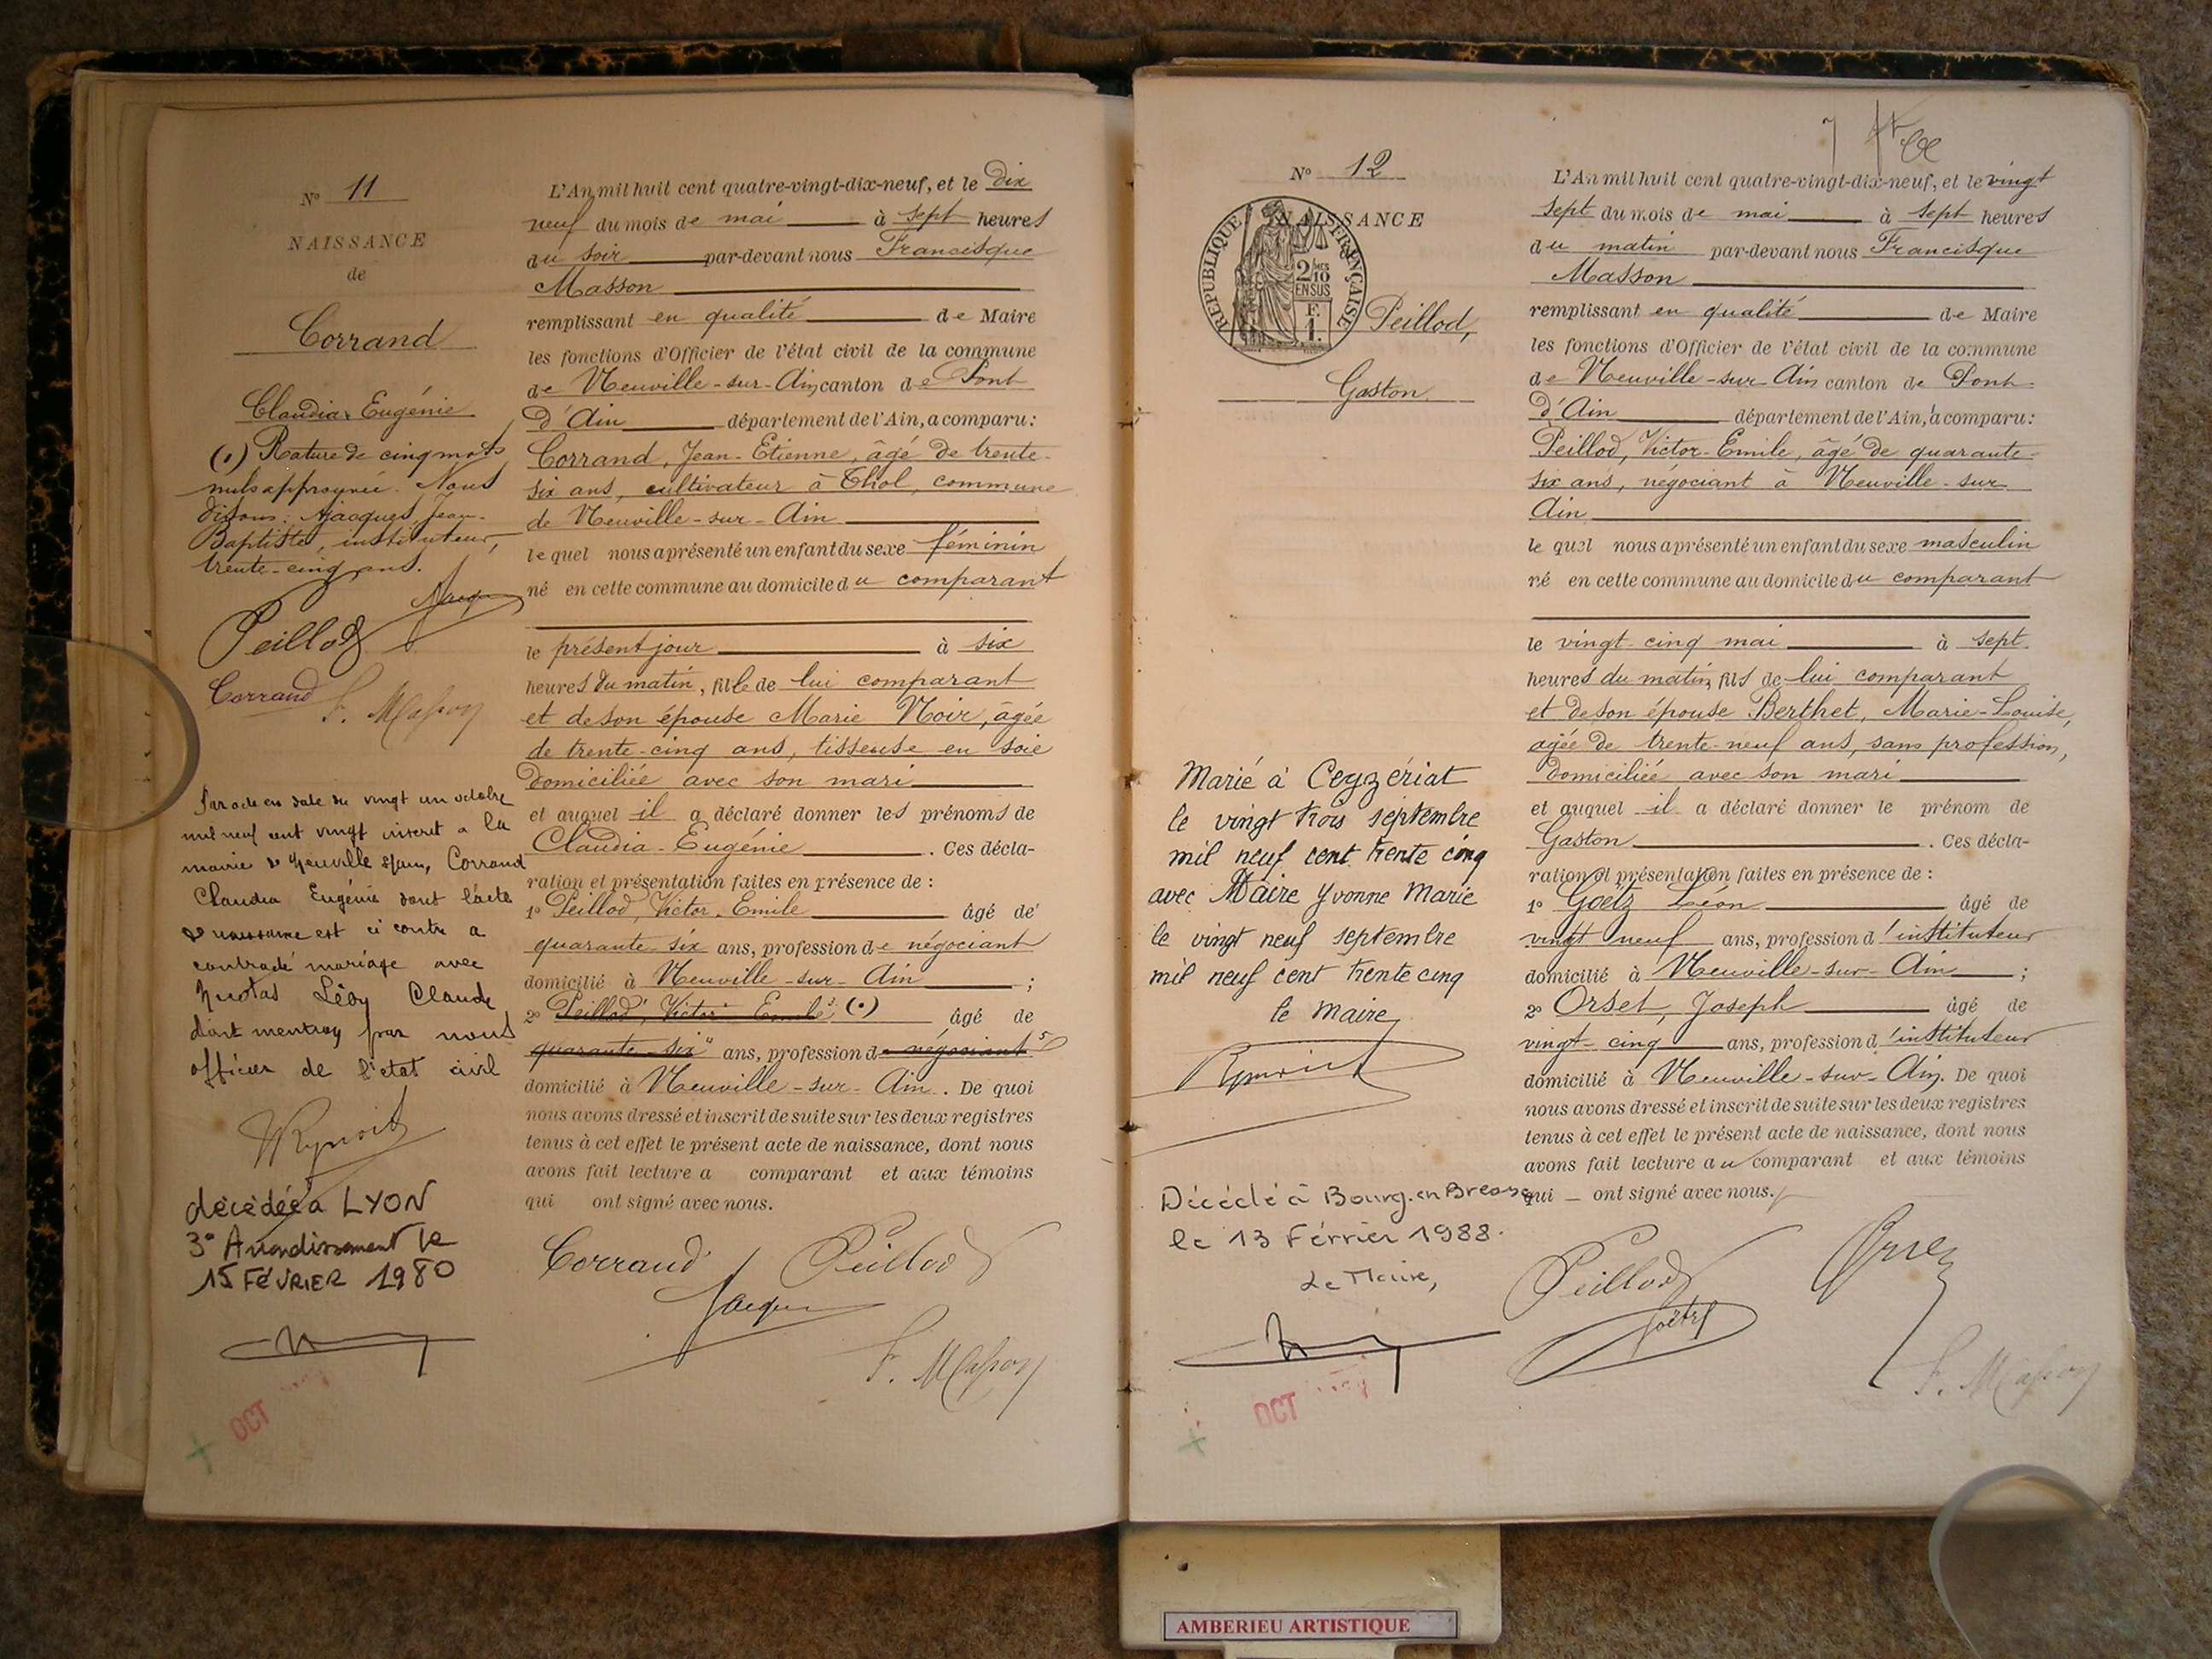 N° 11
NAISSANCE
de
Corrand
Claudia Eugénie
(1) Rature de cinq mots
nuls approuvée. Nous
disons: Jacques, Jean-
Baptiste, instituteur,
trente-cinq ans.
Jacque
Peillod
Corrand F. Masson
Par acte en date du vingt un octobre
mil neuf cent vingt inscrit a la
mairie de Neuville s/ain, Corrand
Claudia Eugénie dont l'acte
de naissance est ci contre a
contracté mariage avec
Léon Claude
dont mention par nous
officier de l'etat civil
décédée à LYON
3e Arrondissement le
15 FÉVRIER 1980
OCT
L'An mil huit cent quatre-vingt-dix-neuf, et le dix
neuf du mois de mai à sept heures
du soir par-devant nous Francisque
Masson
remplissant en qualité de Maire
les fonctions d'Officier de l'état civil de la commune
de Neuville-sur-Ain, canton de Pont
d'Ain département de l'Ain, a comparu:
Corrand, Jean-Etienne, âgé de trente-
six ans, cultivateur à Thol, commune
de Neuville-sur-Ain
le quel nous a présenté un enfant du sexe féminin
né en cette commune au domicile du comparant
le présent jour à six
heures du matin, fille de lui comparant
et de son épouse Marie Noir, âgée
de trente-cinq ans, tisseuse en soie
domiciliée avec son mari
et auquel il a déclaré donner les prénoms de
Claudia-Eugénie . Ces décla-
ration et présentation faites en présence de :
1° Peillod, Victor-Emile âgé de
quarante six ans, profession de négociant
domicilié à Neuville-sur-Ain ;
2° Peillod, Victor Emile (1) âgé de
quarante-six ans, profession de négociant
domicilié à Neuville-sur-Ain. De quoi
nous avons dressé et inscrit de suite sur les deux registres
tenus à cet effet le présent acte de naissance, dont nous
avons fait lecture a comparant et aux témoins
qui ont signé avec nous.
Corrand Peillod
Jacque
F. Masson
N° 12
NAISSANCE
REPUBLIQUE FRANÇAISE
2/10 EN SUS
F. 1.
Peillod,
Gaston
Marié à Ceyzériat
le vingt trois septembre
mil neuf cent trente cinq
avec Maire Yvonne Marie
le vingt neuf septembre
mil neuf cent trente cinq
le Maire
Décédé à Bourg-en-Bresse
le 13 Février 1988.
Le Maire,
OCT
L'An mil huit cent quatre-vingt-dix-neuf, et le vingt
sept du mois de mai à sept heures
du matin par-devant nous Francisque
Masson
remplissant en qualité de Maire
les fonctions d'Officier de l'état civil de la commune
de Neuville-sur-Ain canton de Pont-
d'Ain département de l'Ain, a comparu:
Peillod, Victor-Emile, âgé de quarante-
six ans, négociant à Neuville-sur
Ain
le quel nous a présenté un enfant du sexe masculin
né en cette commune au domicile du comparant
le vingt-cinq mai à sept
heures du matin, fils de lui comparant
et de son épouse Berthet, Marie-Louise,
agée de trente-neuf ans, sans profession,
domiciliée avec son mari
et auquel il a déclaré donner le prénom de
Gaston . Ces décla-
ration et présentation faites en présence de :
1° Goëtz Léon âgé de
vingt neuf ans, profession d'instituteur
domicilié à Neuville-sur-Ain ;
2° Orset, Joseph âgé de
vingt-cinq ans, profession d'instituteur
domicilié à Neuville-sur-Ain. De quoi
nous avons dressé et inscrit de suite sur les deux registres
tenus à cet effet le présent acte de naissance, dont nous
avons fait lecture au comparant et aux témoins
qui — ont signé avec nous.
Peillod Orset
Goëtz
F. Masson
AMBERIEU ARTISTIQUE